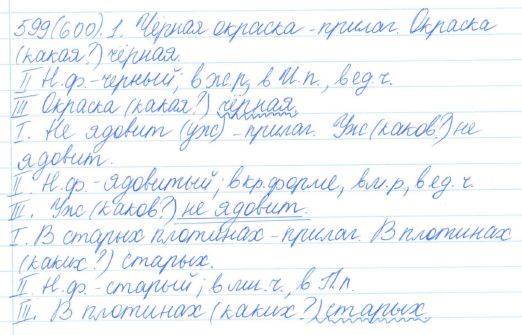 599(600). 1. Чёрная окраска - прилаг. Окраска
(какая?) чёрная.
II Н.ф. - чёрный; в ж.р., в И.п., в ед.ч.
III Окраска (какая?) чёрная
I. Не ядовит (уж) - прилаг. Уж (каков?) не
ядовит.
II. Н.ф. - ядовитый; в кр. форме, в м.р., в ед.ч.
III. Уж (каков?) не ядовит.
I. В старых плотинах - прилаг. В плотинах
(каких?) старых.
II Н.ф. - старый; в мн.ч., в П.п.
III. В плотинах (каких?) старых